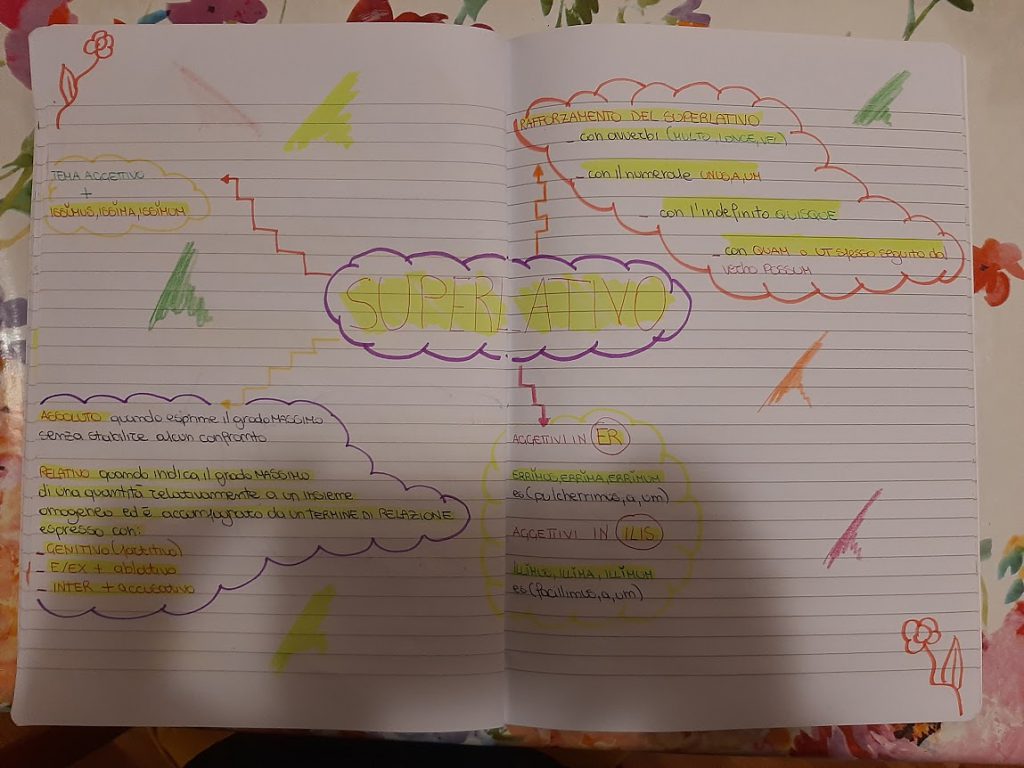 SUPERLATIVO
TEMA AGGETTIVO
+
ISSIMUS, ISSIMA, ISSIMUM
RAFFORZAMENTO DEL SUPERLATIVO
- con avverbi (MULTO, LONGE, VEL)
- con il numerale UNUS, A, UM
- con l'indefinito QUISQUE
- con QUAM o UT spesso seguito dal
verbo POSSUM
ASSOLUTO quando esprime il grado MASSIMO
senza stabilire alcun confronto
RELATIVO quando indica il grado MASSIMO
di una quantità relativamente a un insieme
omogeneo ed è accompagnato da un TERMINE DI RELAZIONE
espresso con:
- GENITIVO (partitivo)
- E/EX + ablativo
- INTER + accusativo
AGGETTIVI IN ER
ERRIMUS, ERRIMA, ERRIMUM
es (pulcherrimus, a, um)
AGGETTIVI IN ILIS
ILLIMUS, ILLIMA, ILLIMUM
es (facillimus, a, um)